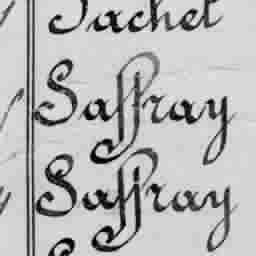 Jachet
Saffray
Saffray